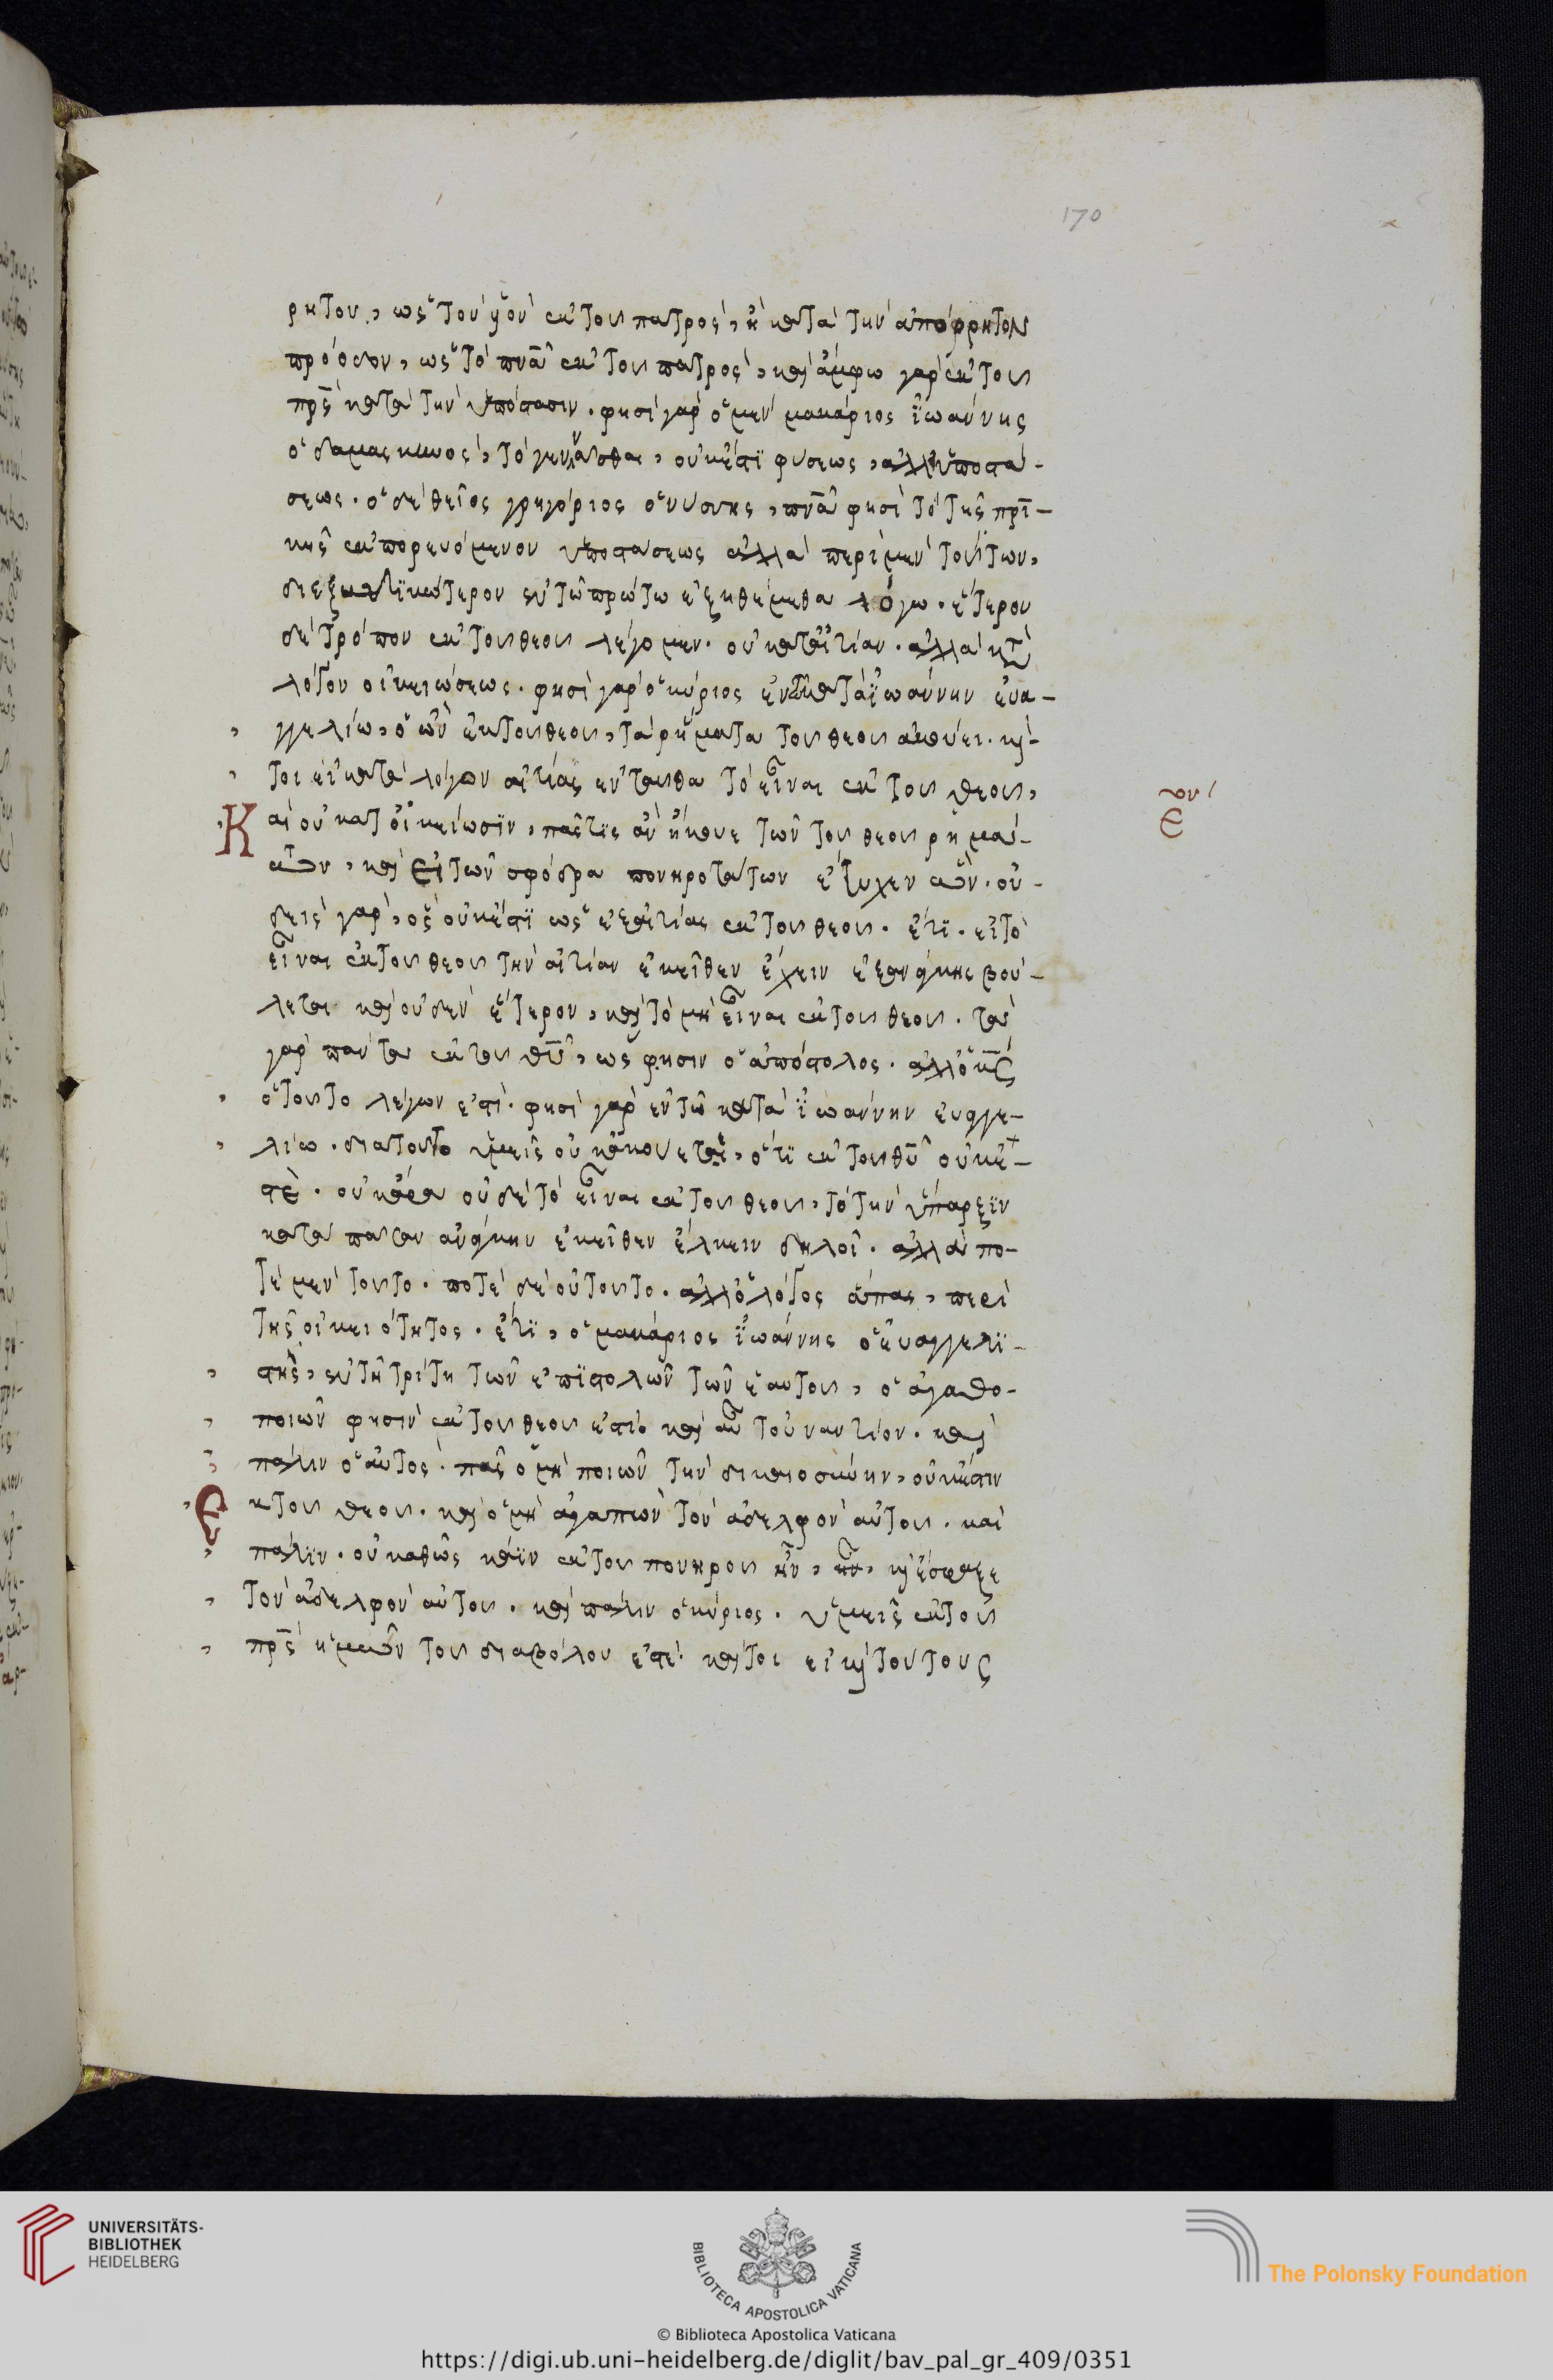 170
ρητον, ὡς τὸν υἱὸν ἐκ τοῦ πατρός, ἢ κατὰ τὴν ἀπόρρητον
πρόοδον, ὡς τὸ πνᾶ ἐκ τοῦ πατρός, καὶ ἄμφω γὰρ ἐκ τοῦ
πρς κατὰ τὴν ὑπόστασιν. φησὶ γὰρ ὁ μὲν μακάριος ἰωάννης
ὁ δαμασκηνός, τὸ γεννᾶσθαι, οὐκ ἔστι φύσεως, ἀλλ' ὑποστά-
σεως. ὁ δὲ θεῖος γρηγόριος ὁ νύσσης, πνᾶ φησὶ τὸ τῆς πρι-
κῆς ἐκπορευόμενον ὑποστάσεως ἀλλὰ περὶ μὲν τούτων,
διεξοδικώτερον ἐν τῶ πρώτω ἐξηθέμεθα λόγω. ἕτερον
δὲ τρόπον ἐκ τοῦ θεοῦ λέγομεν. οὐ κατ' αἰτίαν. ἀλλὰ κτ
λόγον οἰκειώσεως. φησὶ γὰρ ὁ κύριος ἐν τῶ κατὰ ἰωάννην εὐα-
γγελίω, ὁ ὢν ἐκ τοῦ θεοῦ, τὰ ρήματα τοῦ θεοῦ ἀκούει. καί-
τοι εἰ κατὰ λόγον αἰτίας ἐνταῦθα τὸ εἶναι ἐκ τοῦ θεοῦ,
Καὶ οὐ κατ' οἰκείωσιν, πᾶς τις ἂν ἤκουε τῶν τοῦ θεοῦ ρημά-
των, καὶ εἰ τῶν σφόδρα πονηροτάτων ἔτυχεν ὤν. οὐ-
δεὶς γὰρ, ὃς οὐκ ἔστι ὡς ἐξ αἰτίας ἐκ τοῦ θεοῦ. ἔτι. εἰ τὸ
εἶναι ἐκ τοῦ θεοῦ τὴν αἰτίαν ἐκεῖθεν ἔχειν ἐξ ἀνάγκης βού-
λεται καὶ οὐδὲν ἕτερον, καὶ τὸ μὴ εἶναι ἐκ τοῦ θεοῦ. τὰ
γὰρ πάντα ἐκ τοῦ θυ, ὥς φησιν ὁ ἀπόστολος. ἀλλ' ὁ κς
ὁ τοῦτο λέγων ἐστί. φησὶ γὰρ ἐν τῶ κατὰ ἰωάννην εὐαγγε-
λίω. διατοῦτο ὑμεῖς οὐκ ἀκούετε, ὅτι ἐκ τοῦ θυ οὐκ ἐ-
στέ. οὐκ ἄρα οὐδὲ τὸ εἶναι ἐκ τοῦ θεοῦ, τὸ τὴν ὕπαρξιν
κατὰ πᾶσαν ἀνάγκην ἐκεῖθεν ἕλκειν δηλοῖ. ἀλλὰ πο-
τὲ μὲν τοῦτο. ποτὲ δὲ οὐ τοῦτο. ἀλλ' ὁ λόγος ἅπας, περὶ
τῆς οἰκειότητος. ἔτι, ὁ μακάριος ἰωάννης ὁ εὐαγγελι-
στὴς, ἐν τῆ τρίτη τῶν ἐπιστολῶν τῶν ἑαυτοῦ, ὁ ἀγαθο-
ποιῶν φησὶν ἐκ τοῦ θεοῦ ἐστί. καὶ αὖ τοὐναντίον. καὶ
πάλιν ὁ αὐτός. πᾶς ὁ μὴ ποιῶν τὴν δικαιοσύνην, οὐκ ἔστιν
Ἐκ τοῦ θεοῦ. καὶ ὁ μὴ ἀγαπῶν τὸν ἀδελφὸν αὐτοῦ. καὶ
πάλιν. οὐ καθὼς κάϊν ἐκ τοῦ πονηροῦ ἦν, ἦν, καὶ ἔσφαξε
τὸν ἀδελφὸν αὐτοῦ. καὶ πάλιν ὁ κύριος. ὑμεῖς ἐκ τοῦ
πρς ὑμῶν τοῦ διαβόλου ἐστέ. καίτοι εἰ καὶ τούτους
UNIVERSITÄTS-
BIBLIOTHEK
HEIDELBERG
BIBLIOTECA APOSTOLICA VATICANA
The Polonsky Foundation
© Biblioteca Apostolica Vaticana
https://digi.ub.uni-heidelberg.de/diglit/bav_pal_gr_409/0351